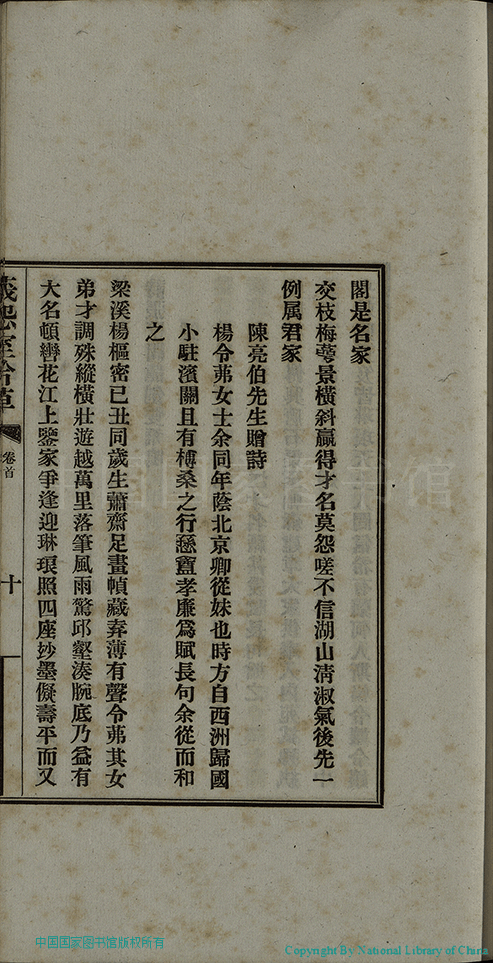 閣是名家
交枝梅萼景橫斜贏得才名莫怨嗟不信湖山淸淑氣後先一
例属君家
陳亮伯先生贈詩
楊令茀女士余同年蔭北京卿從妹也時方自西洲歸國
小駐濱關且有榑桑之行孝廉爲賦長句余從而和
之
梁溪楊樞密已丑同歲生蕭齋足畫幀藏弆薄有聲令茀其女
弟才調殊縱橫壯遊越萬里落筆風雨驚邱壑湊腕底乃益有
大名頓轡花江上鑒家爭逢迎琳琅照四座抄墨儗壽平而又
莪怨室吟草
卷首
十
中国国家图书馆版权所有
Copyright By National Library of China